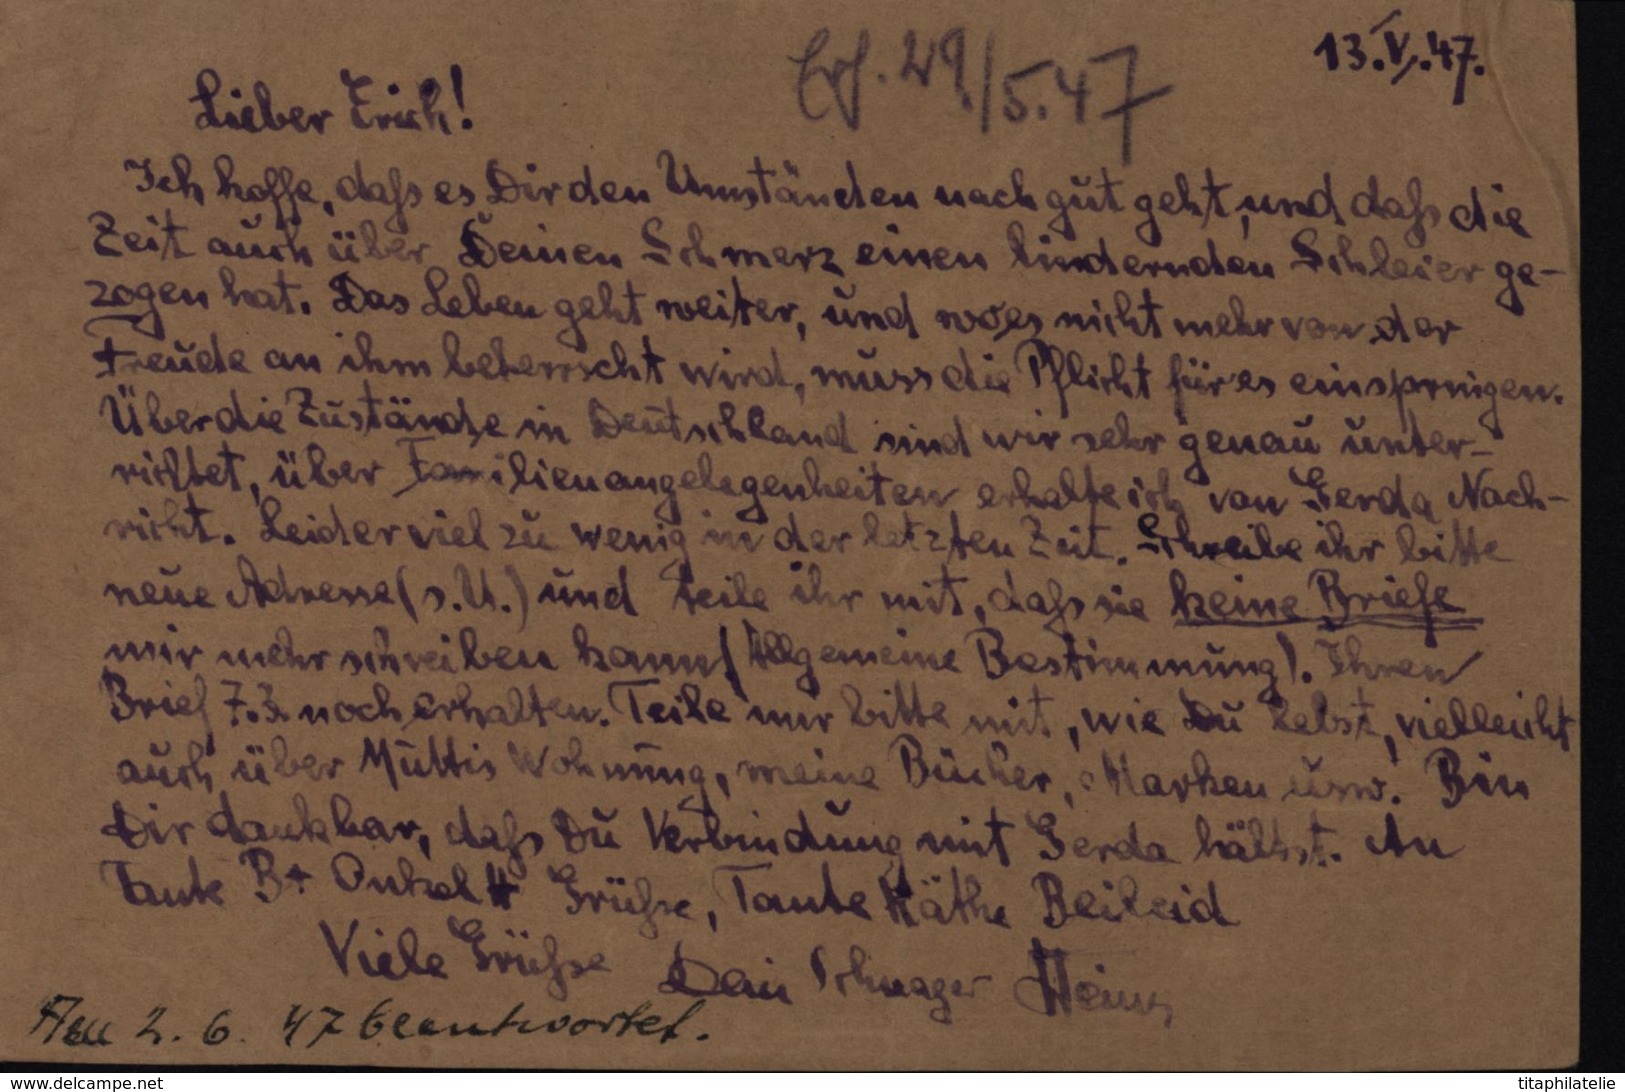 13.V.47.
Erh. 29./5.47
Lieber Erich!
Ich hoffe, daſs es Dir den Umständen nach gut geht, und daſs die
Zeit auch über Deinen Schmerz einen lindernden Schleier ge-
zogen hat. Das Leben geht weiter, und wo es nicht mehr von der
Freude an ihm beherrscht wird, muss die Pflicht für es einspringen.
Über die Zustände in Deutschland sind wir sehr genau unter-
richtet, über Familienangelegenheiten erhalte ich von Gerda Nach-
richt. Leider viel zu wenig in der letzten Zeit. Schreibe ihr bitte
neue Adresse (s.U.) und teile ihr mit, daſs sie keine Briefe
mir mehr schreiben kann (Allgemeine Bestimmung). Ihren
Brief 7.3. noch erhalten. Teile mir bitte mit, wie Du lebst, vielleicht
auch über Muttis Wohnung, meine Bücher, Marken usw. Bin
Dir dankbar, daſs Du Verbindung mit Gerda hältst. An
Tante B + Onkel H Grüſse, Tante Käthe Beileid
Viele Grüſse Dein Schwager Heinz
Am 2. 6. 47 beantwortet.
www.delcampe.net
titaphilatelie